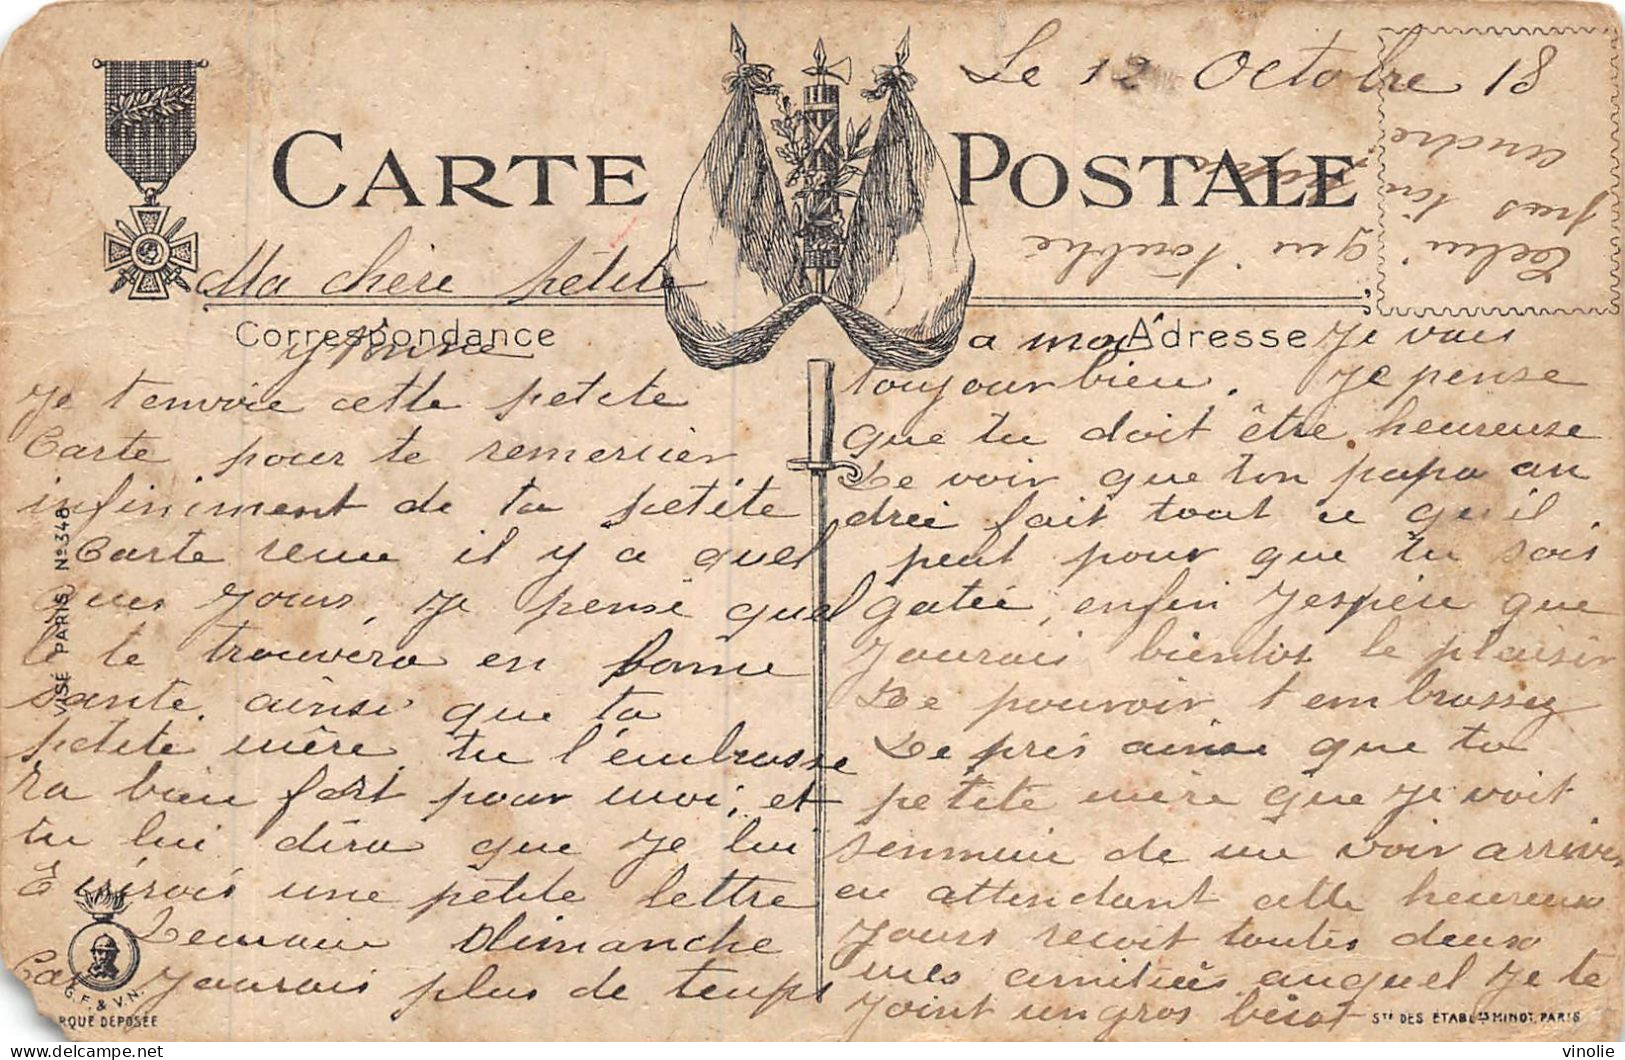 Le 12 Octobre 18
CARTE POSTALE
Ma chère petite
Correspondance
Yvonne
Je t'envoie cette petite
Carte pour te remercier
infiniment de ta petite
Carte reçue il y a quel
ques jours, je pense quel
le te trouvera en bonne
santé ainsi que ta
petite mère, tu l'embrasse
ra bien fort pour moi; et
tu lui dira que je lui
Ecrirais une petite lettre
Demain Dimanche
Car j'aurais plus de temps
Adresse
a moi Je vais
toujour bien. Je pense
que tu doit être heureuse
De voir que ton papa an
dré fait tout ce qu'il
peut pour que tu sois
gatée, enfin J'espère que
J'aurais bientot le plaisir
De pouvoir t'embrassez
De près ainsi que ta
petite mère que je voit
s'ennuie de me voir arriver
en attendant cette heureux
Jours reçoit toutes deux
mes amitiés auquel je te
Joint un gros besot
Celui qui t'oublie
pas ton papa
andré
VISÉ PARIS No 348
G.F. & V.N.
RQUE DEPOSEE
Sté DES ÉTABLts MINOT, PARIS
vinolie